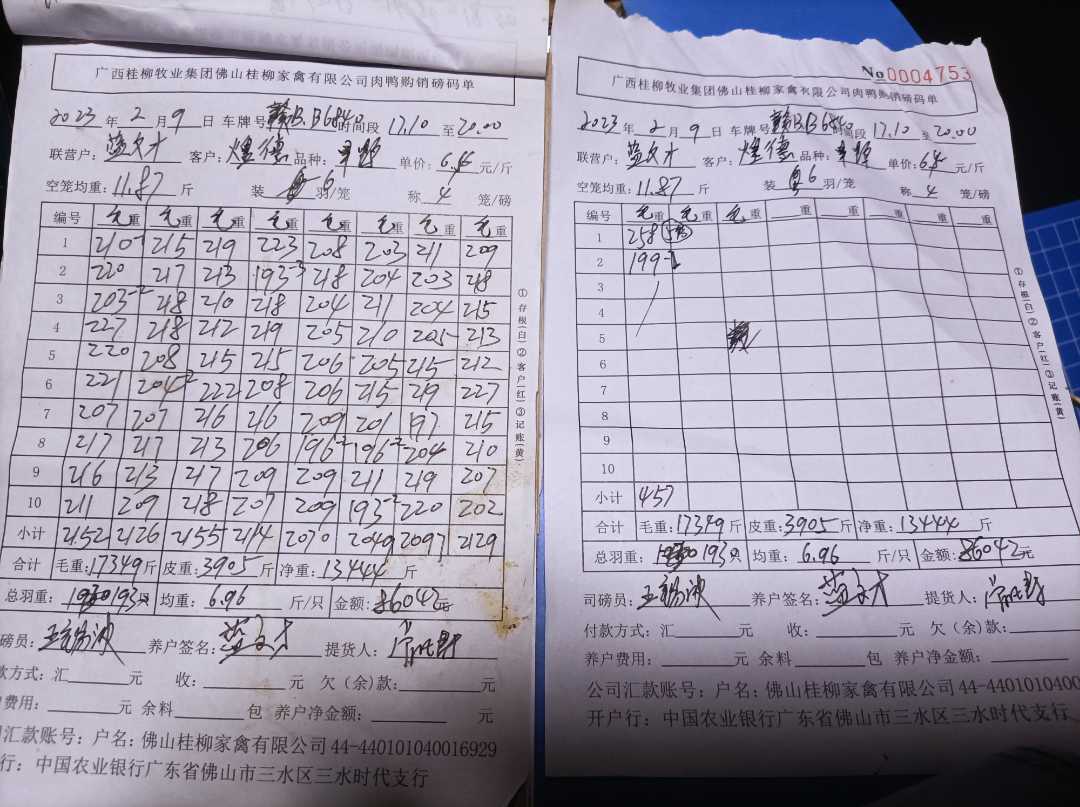 广西桂柳牧业集团佛山桂柳家禽有限公司肉鸭购销磅码单
2023 年 2 月 9 日 车牌号 赣B.B6840 时间段 17.10 至 20.00
联营户: 客户: 煌德 品种: 单价: 元/斤
空笼均重: 11.87 斤 装 6 羽/笼 称 4 笼/磅
编号 毛重 毛重 毛重 毛重 毛重 毛重 毛重 毛重
1 210-1 215 219 223 208 203 211 209
2 220 217 213 193-3 218 204 203 218
3 203-2 218 210 218 204 211 204 215
4 227 218 212 219 205 210 205 213
5 220 208 215 215 206 205 215 212
6 221 204-2 222 208 206 215 219 227
7 207 207 216 216 209 201 197 215
8 217 217 213 206 196-2 196-2 204 210
9 216 213 217 209 209 211 219 207
10 211 209 218 207 209 193-2 220 202
小计 2152 2126 2155 2134 2070 2049 2097 2129
合计 毛重: 17349 斤 皮重: 3905 斤 净重: 13444 斤
总羽重: 193 只 均重: 6.96 斤/只 金额: 86042 元
磅员: 养户签名: 提货人:
款方式: 汇 元 收: 元 欠(余)款: 元
费用: 元 余料 包 养户净金额: 元
汇款账号: 户名: 佛山桂柳家禽有限公司 44-440101040016929
行: 中国农业银行广东省佛山市三水区三水时代支行
①存根(白)②客户(红)③记账(黄)
No 0004753
广西桂柳牧业集团佛山桂柳家禽有限公司肉鸭购销磅码单
2023 年 2 月 9 日 车牌号 赣B.B6840 时间段 17.10 至 20.00
联营户: 客户: 煌德 品种: 单价: 6.4 元/斤
空笼均重: 11.87 斤 装 6 羽/笼 称 4 笼/磅
编号 毛重 毛重 毛重 重 重 重 重 重
1 258
2 199-1
3
4
5
6
7
8
9
10
小计 457
合计 毛重: 17349 斤 皮重: 3905 斤 净重: 13444 斤
总羽重: 193 只 均重: 6.96 斤/只 金额: 86042 元
司磅员: 养户签名: 提货人:
付款方式: 汇 元 收: 元 欠(余)款:
养户费用: 元 余料 包 养户净金额:
公司汇款账号: 户名: 佛山桂柳家禽有限公司 44-4401010400
开户行: 中国农业银行广东省佛山市三水区三水时代支行
①存根(白)②客户(红)③记账(黄)